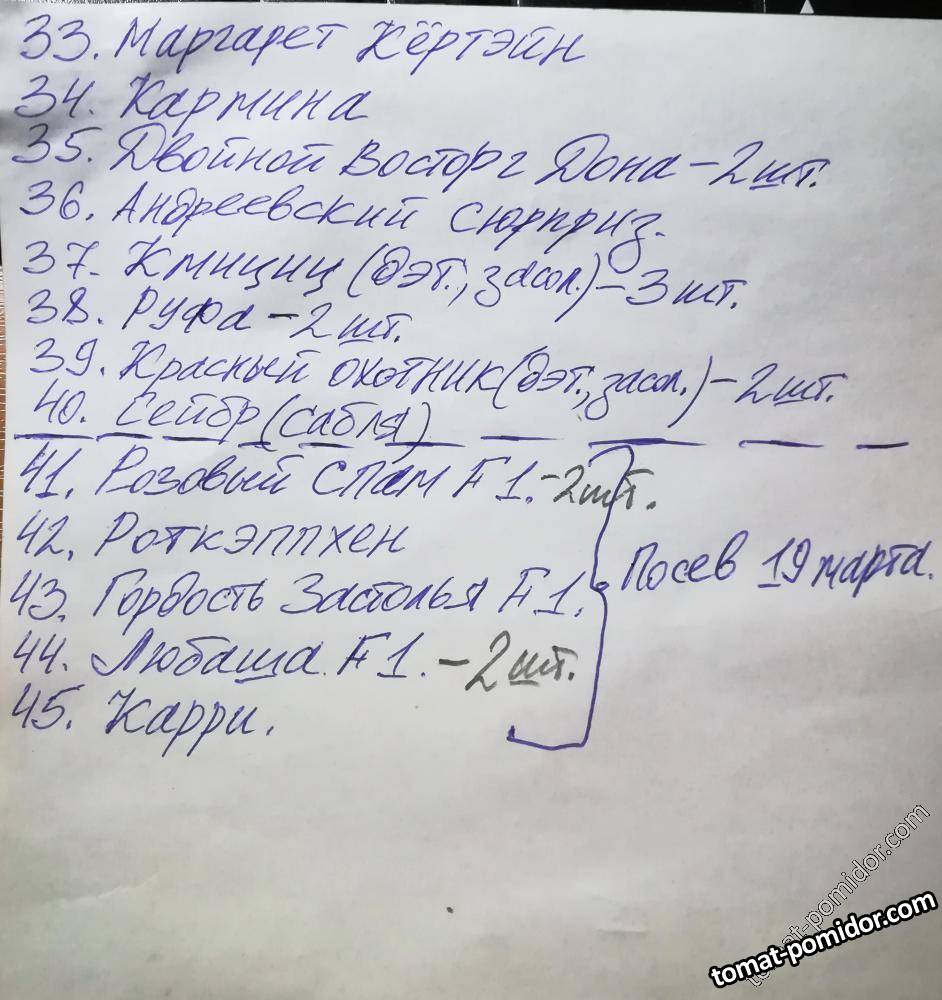 33. Маргарет Кёртэйн
34. Кармина
35. Двойной Восторг Дона – 2 шт.
36. Андреевский сюрприз.
37. Кмициц (дэт., засол.) – 3 шт.
38. Руфа – 2 шт.
39. Красный охотник (дэт., засол.) – 2 шт.
40. Сейбр (сабля)
41. Розовый Спам F1. – 2 шт.
42. Роткэппхен
43. Гордость Застолья F1.
Посев 19 марта.
44. Любаша F1. – 2 шт.
45. Карри.
tomat-pomidor.com
tomat-pomidor.com